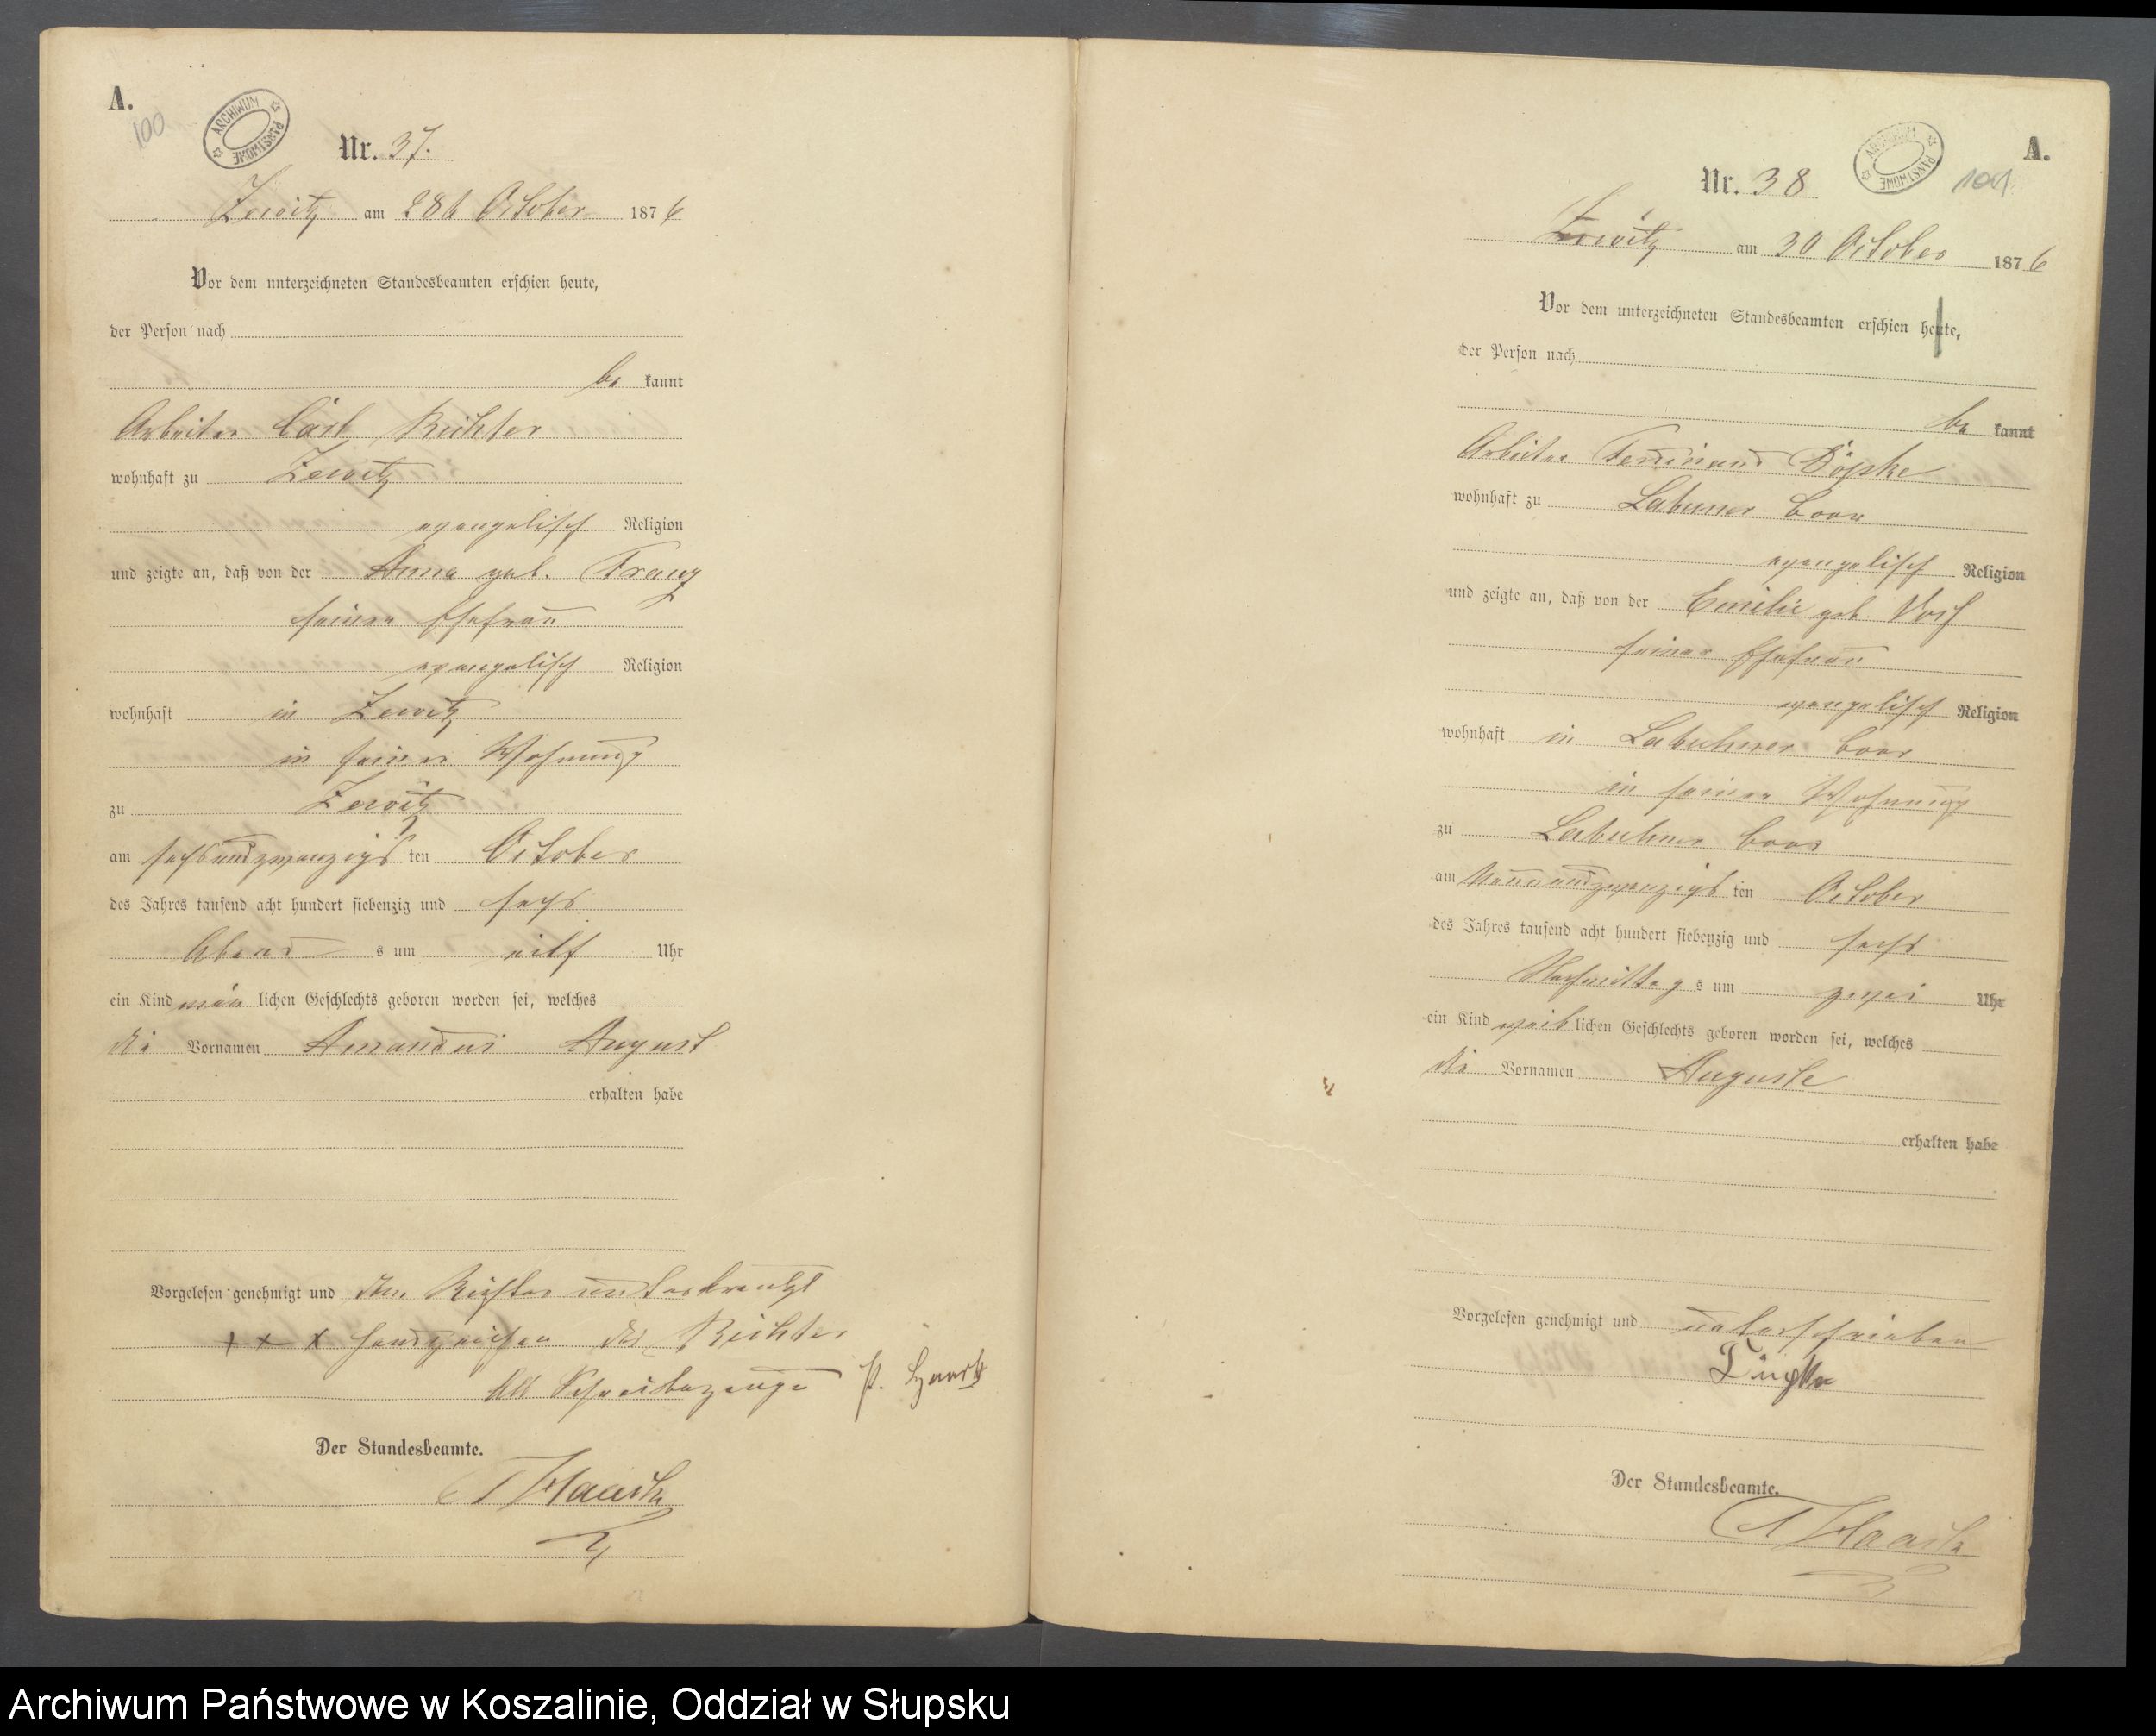 A.
100
ARCHIWUM PAŃSTWOWE
Nr. 37.
Zewitz am 28t October 1876
Vor dem unterzeichneten Standesbeamten erschien heute,
der Person nach
be kannt
Arbeiter Carl Richter
wohnhaft zu Zewitz
evangelisch Religion
und zeigte an, daß von der Anna geb. Franz
seiner Ehefrau
evangelisch Religion
wohnhaft in Zewitz
in seiner Wohnung
zu Zewitz
am sechsundzwanzigst ten October
des Jahres tausend acht hundert siebenzig und sechs
Abend s um eilf Uhr
ein Kind män lichen Geschlechts geboren worden sei, welches
die Vornamen Amandus August
erhalten habe
Vorgelesen genehmigt und von Richter unterkreutzt
+ + x Handzeichen des Richter
Als Schreibezeuge
Der Standesbeamte.
Haack
A.
ARCHIWUM PAŃSTWOWE
Nr. 38
Zewitz am 30 October 1876
Vor dem unterzeichneten Standesbeamten erschien heute,
der Person nach
be kannt
Arbeiter Ferdinand Döpke
wohnhaft zu Labuner
evangelisch Religion
und zeigte an, daß von der Emilie geb.
seiner Ehefrau
evangelisch Religion
wohnhaft in Labuhner
in seiner Wohnung
zu Labuhner
am Neunundzwanzigst ten October
des Jahres tausend acht hundert siebenzig und sechs
Nachmittag s um zwei Uhr
ein Kind weib lichen Geschlechts geboren worden sei, welches
die Vornamen Auguste
erhalten habe
Vorgelesen genehmigt und unterschrieben
Der Standesbeamte.
Haack
Archiwum Państwowe w Koszalinie, Oddział w Słupsku